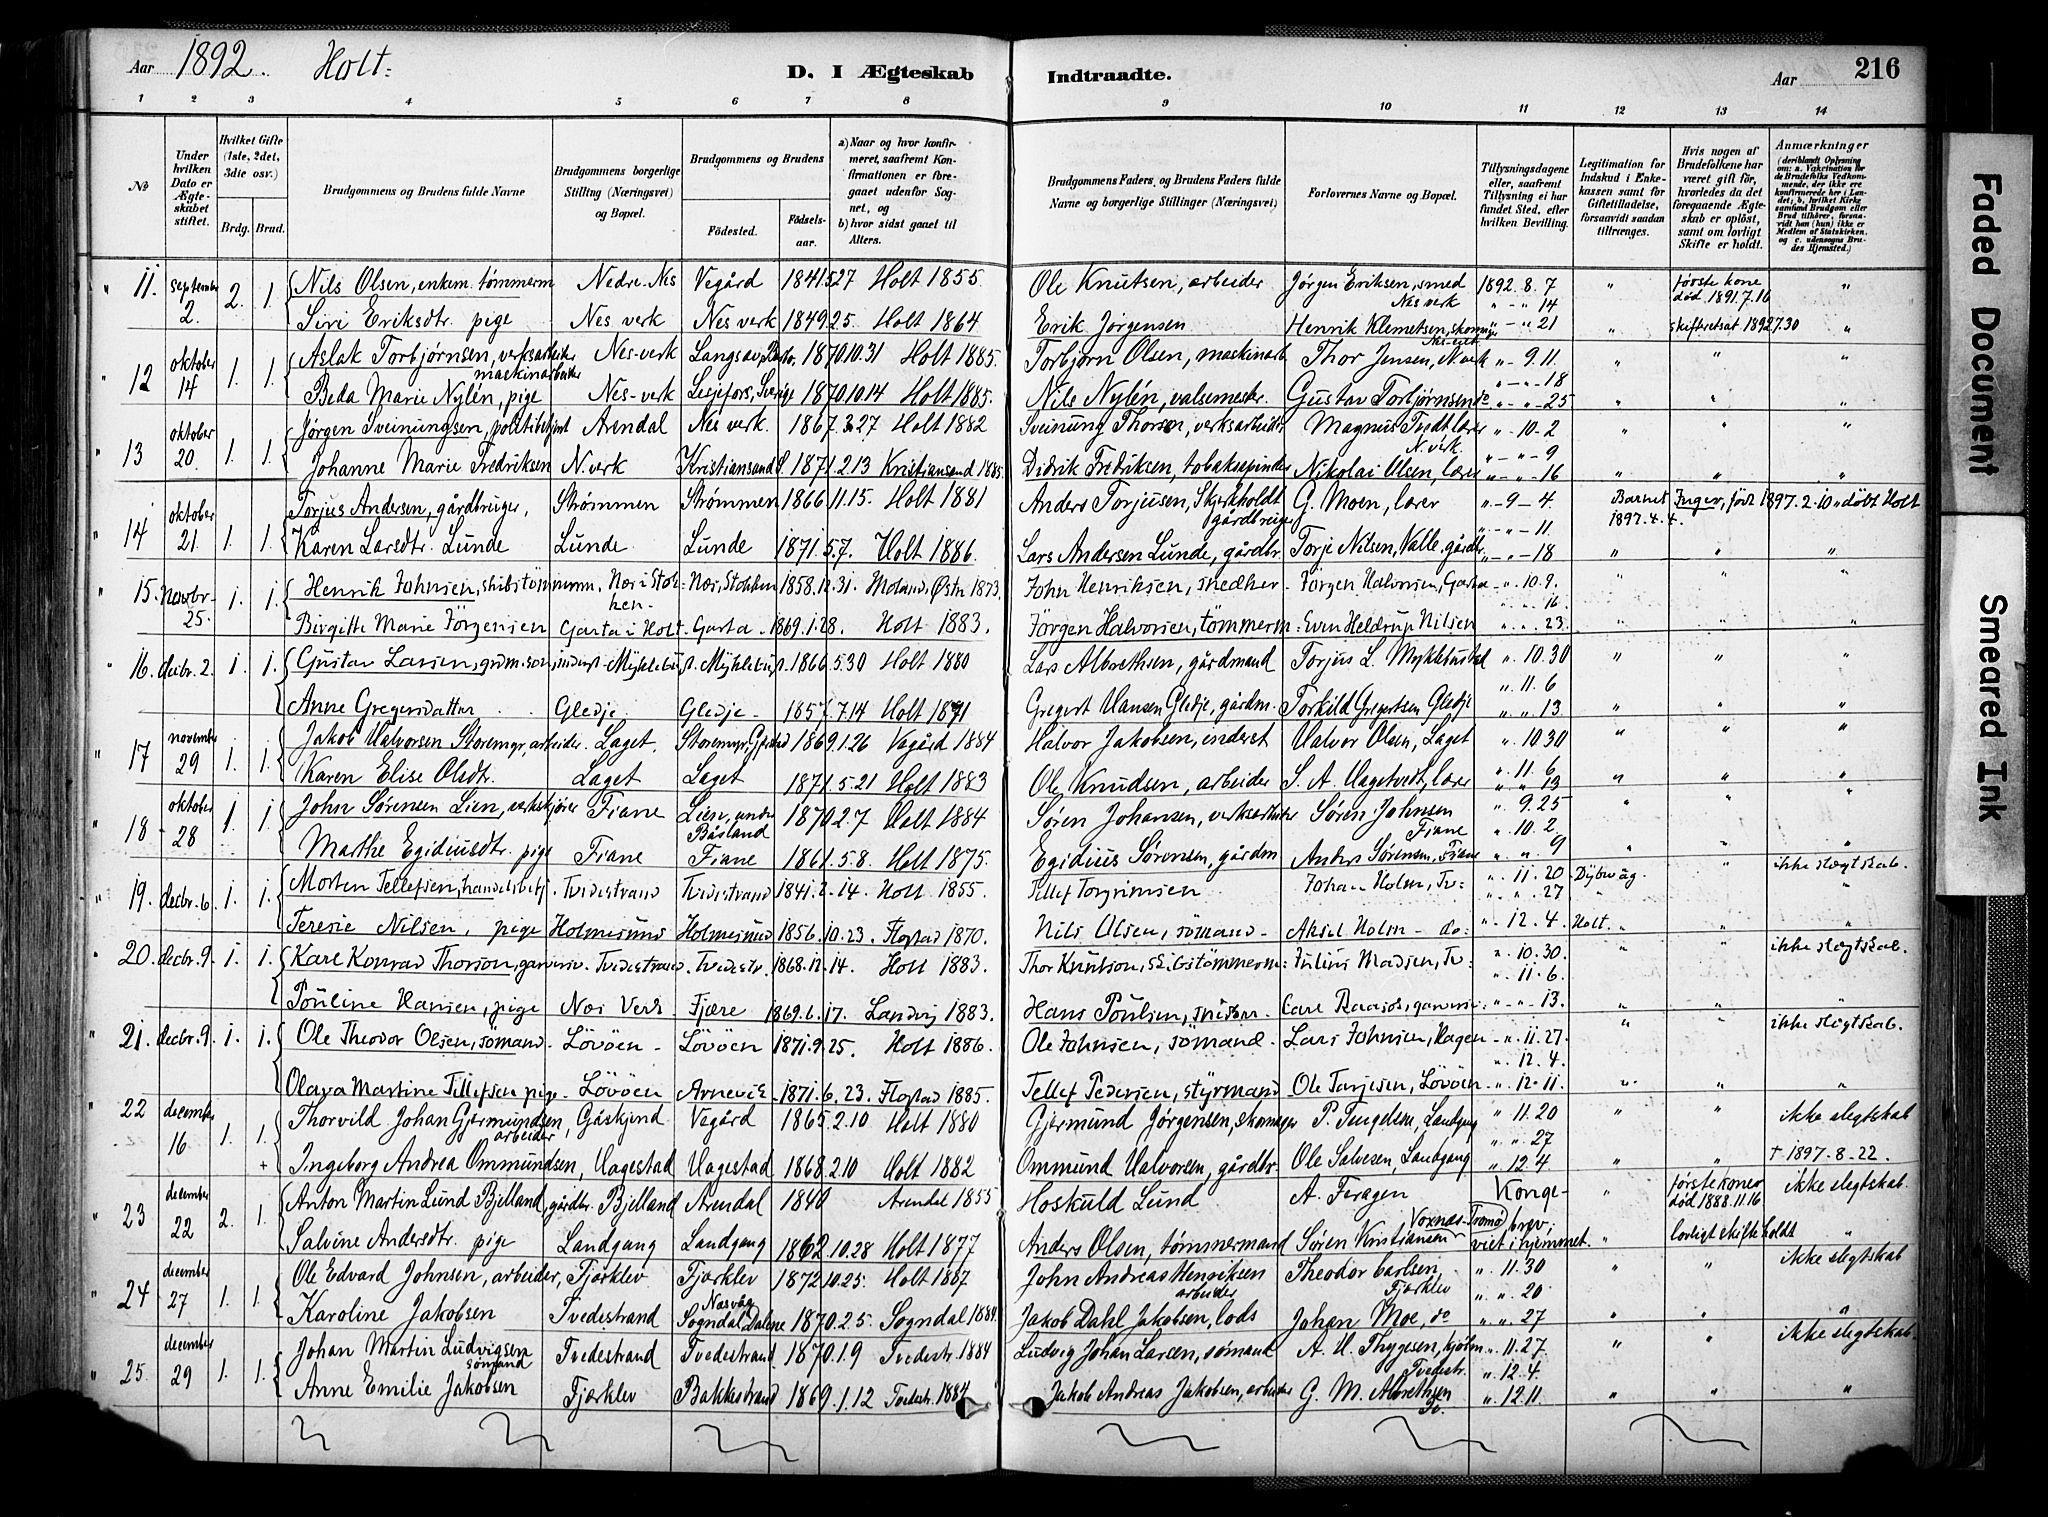 Aar 1892. Holt:
D. I Ægteskab Indtraadte. Aar 216
1 2 3 4 5 6 7 8 9 10 11 12 13 14
No
Under hvilken Dato er Ægteskabet stiftet.
Hvilket Gifte (1ste, 2det, 3die osv.)
Brdg. Brud.
Brudgommens og Brudens fulde Navne
Brudgommens borgerlige Stilling (Næringsvei) og Bopæl.
Brudgommens og Brudens
Fødested. Fødselsaar.
a) Naar og hvor konfirmeret, saafremt Konfirmationen er foregaaet udenfor Sognet, og
b) hvor sidst gaaet til Alters.
Brudgommens Faders, og Brudens Faders fulde Navne og borgerlige Stillinger (Næringsvei)
Forlovernes Navne og Bopæl.
Tillysningsdagene eller, saafremt Tillysning ei har fundet Sted, efter hvilken Bevilling.
Legitimation for Indskud i Enkekassen samt for Giftetilladelse, forsaavidt saadan tiltrænges.
Hvis nogen af Brudefolkene har været gift før, hvorledes da det foregaaende Ægteskab er opløst, samt om lovligt Skifte er holdt.
Anmærkninger (deriblandt Oplysning om: a. Vakcination for de Brudefolks Vedkommende, der ikke ere konfirmerede her i Landet; b. hvilket Kirkesamfund Brudgom eller Brud tilhører, forsaavidt han (hun) ikke er Medlem af Statskirken, og c. udensogns Brudes Hjemsted.)
" 11. september 2 2. 1. Nils Olsen, enkem. tømmerm Nedre-Nes Vegård 1841.5.27 Holt 1855. Ole Knutsen, arbeider Jørgen Eriksen, smed Nes verk 1892. 8. 7 " første kone død 1891.7.16 "
" - " 14
Siri Eriksdtr. pige Nes verk Nes verk 1849.25. Holt 1864 Erik Jørgensen Henrik Klemetsen, Nes verk " - " 21 skifteretsat 1892.7.30 "
" 12 oktober 14 1. 1. Aslak Torbjørnsen, verksarbeider maskinarbeider Nes-verk Langsæ, 1870.10.31 Holt 1885. Torbjørn Olsen, maskinarb Thor Jensen, N.verk " - 9. 11 " " "
" - " - 18
Beda Marie Nylén, pige Nes-verk Lesjefors, Sverige 1870.10.14 Holt 1885. Nils Nylén, valsemester. Gustav Torbjørnsen do " - " - 25 " " "
" 13 oktober 20. 1. 1. Jørgen Sveinungsen, politibetjent Arendal Nes verk. 1867.3.27 Holt 1882 Sveinung Thorsen, verksarbeider Magnus Tvedt lærer N. verk. " - 10 - 2 " " "
" - " - 9
Johanne Marie Fredriksen N. verk Kristiansand S. 1871.2.13 Kristiansand 1885. Didrik Fredriksen, tobakspinder Nikolai Olsen, lærer " - " - 16 " " "
" 14 oktober 21. 1. 1. Torjus Andersen, gårdbruger, Strømmen Strømmen 1866.11.15. Holt 1881 Anders Torjusen, Skjerkholdt gårdbruger G. Moen, lærer " - 9 - 4 Barnet Inger, født 1897.2.10 " døbt Holt 1897.4.4.
" - " - 11
Karen Larsdtr. Lunde Lunde. Lunde 1871.5.7. Holt 1886. Lars Andersen Lunde, gårdbr. Torje Nilsen, Valle, gårdbr " - " - 18 " " "
" 15. Novbr. 25. 1. 1. Henrik Johnsen, skibstømmerm. Næs i Stokken. Næs, Stokken 1858.12.31. Moland, Østre 1873. John Henriksen, snedker. Jørgen Halvorsen, Garta " - 10. 9. " " "
" " 16
Birgitte Marie Jörgensen Garta i Holt. Garta. 1869.1.28. Holt 1883. Jörgen Halvorsen, tömmerm: Even Heldrup Nilsen " . " . 23. " " "
" 16. decbr. 2. 1. 1. Gustav Larsen, grdm.son, inderst. Myklebust. Myklebust. 1866.5.30 Holt 1880 Lars Albrethsen, gårdmand Torjus L. Myklebustad " 10. 30 " " "
" 11. 6
Anne Gregersdatter Gledje. Gledje. 1857.7.14 Holt 1871 Gregert Hansen Gledje, gårdm. Torkild Gregertsen Gledje " " 13. " " "
" 17 november 29 1. 1. Jakob Halvorsen Storemyr, arbeider. Laget. Storemyr, Gjerstad 1869.1.26 Vegård 1884 Halvor Jakobsen, inderst Halvor Olsen, Laget " 10 30 " " "
" 11. 6
Karen Elise Olsdtr. Laget Laget 1871.5.21 Holt 1883 Ole Knudsen, arbeider S. A. Hagetvedt, lærer " " 13 " " "
" 18 oktober 28 1. 1. John Sørensen Lien, verkskjører Fiane Lien, under Båsland 1870.2.7 Holt 1884 Søren Johansen, verksarbeider Søren Johnsen Fiane " 9. 25 " " "
" 10. 2
Marthe Egidiusdtr. pige Fiane Fiane 1861.5.8. Holt 1875. Egidius Sørensen, gårdm Anders Sørensen, Fiane " " 9 " " ikke slegtskab.
" 19. decbr. 6 1. 1. Morten Tellefsen, handelsbetj. Tvedestrand Tvedestrand 1841.2.14. Holt 1855. Tellef Torgrimsen Johan Holm, Tv: " . 11. 20 Dybvåg. " "
" . " . 27
Teresie Nilsen, pige Holmesund Holmesund 1856.10.23. Flostad 1870. Nils Olsen, sömand. Aksel Holm - do: " . 12. 4. Holt. " "
" 20. decbr. 9. 1. 1. Karl Konrad Thorson, garveriv. Tvedestrand. Tvedestr. 1868.12.14. Holt 1883. Thor Knutson, skibstömmerm: Julius Madsen, Tv: " . 10. 30. " " ikke slegtskab.
" . 11. 6.
Pouline Hansen, pige Næs Verk Fjære 1869.6.17. Landvig 1883. Hans Poulsen, Carl " . " . 13. " " "
" 21. decbr. 9. 1. 1. Ole Theodor Olsen, sömand. Lövöen. Lövöen 1871.9.25. Holt 1886. Ole Johnsen, sömand. Lars Johnsen, Hagen " . 11. 27. " " ikke slegtskab.
" . 12. 4.
Olava Martine Tellefsen pige. Lövöen Arnevik. 1871.6.23. Flostad 1885. Tellef Pedersen, styrmand Ole Tarjesen, Lövöen " . 12. 11. " " "
" 22 december 16 1. 1. Thorvild Johan Gjermundsen, arbeider Gåskjend Vegård 1865.2.10 Holt 1880 Gjermund Jørgensen, skomager P. Tengelsen, Landgang " 11. 20 " " ikke slegtskab
" " 27
+ Ingeborg Andrea Ommundsen, Hagestad Hagestad 1868.2.10 Holt 1882 Ommund Halvorsen, gårdbr. Ole Salvesen, Landgang " 12. 4 " " † 1897-8-22.
" 23 december 22 2. 1. Anton Martin Lund Bjelland, gårdbr. Bjelland Arendal 1840 Arendal 1855 Hoskuld Lund A. Feragen Konge- " første kone død 1888.11.16 ikke slegtskab.
Salvine Andersdtr. pige Landgang Landgang 1862.10.28 Holt 1877 Anders Olsen, tømmermand Søren Kristiansen Voxnæs Tromø brev; viet i hjemmet. " lovligt skifte holdt "
" 24 december 27 1. 1. Ole Edvard Johnsen, arbeider, Fjorklev Fjorklev 1872.10.25. Holt 1887 John Andreas Henriksen arbeider Theodor Carlsen, Fjorklev " 11. 30 " " ikke slegtskab
" " 20
Karoline Jakobsen Tvedestrand Nesvåg Sogndal Dalene 1870.2.5. Sogndal 1884 Jakob Dahl Jakobsen, lods Johan Moe, do " " 27 " " "
" 25. december 29 1. 1. Johan Martin Ludvigsen sømand Tvedestrand Tvedestrand 1870.1.9 Tvedestr. 1884 Ludvig Johan Larsen, sømand A. U. Thygesen, kjøbm. Tvedestr. " 11. 27. " " ikke slegtskab.
" 12. 4.
Anne Emilie Jakobsen Fjorklev Bakkestrand 1869.1.12 Tvedestr. 1884 Jakob Andreas Jakobsen, arbeider G. M. Albrethsen Tv. " 12. 11. " " "
Faded Document
Smeared Ink